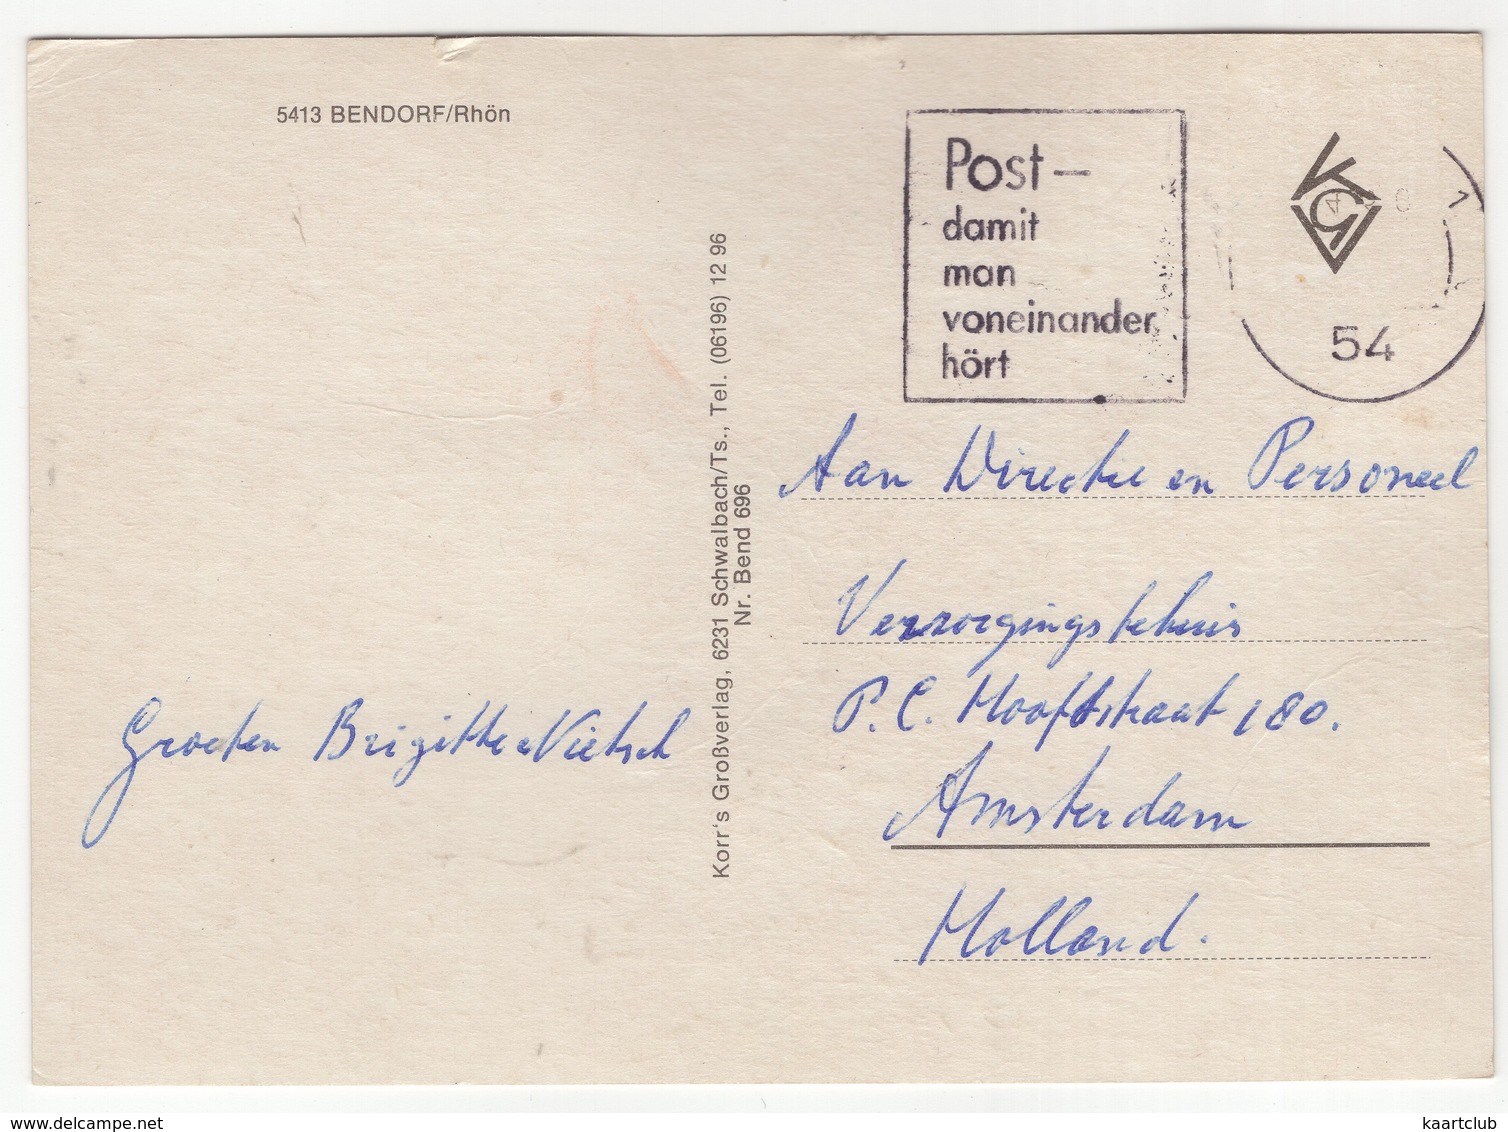 5413 BENDORF/Rhön
Post –
damit
man
voneinander
hört
54
Korr's Großverlag, 6231 Schwalbach/Ts., Tel. (06196) 12 96
Nr. Bend 696
Groeten Brigitte Nietsch
Aan Directie en Personeel
Verzorgingstehuis
P.C. Hooftstraat 180.
Amsterdam
Holland.
delcampe.net
kaartclub